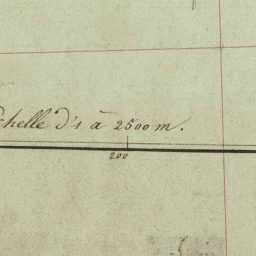 chelle d'1 à 2500 m.
200